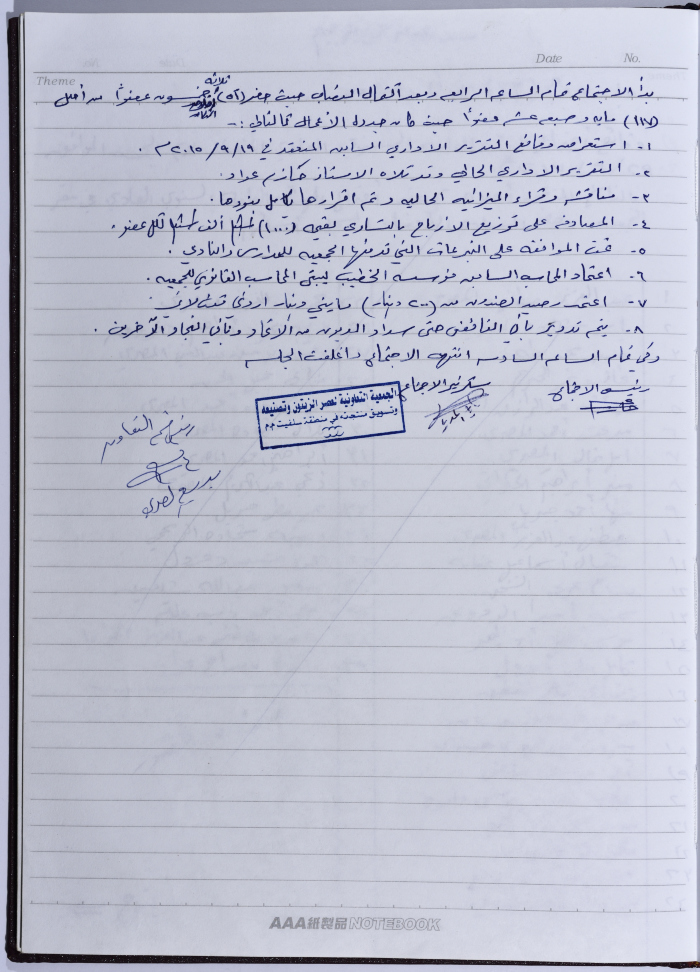 Date No.
Theme
بدأ الاجتماع تمام الساعه الرابعه وبعد اكتمال النصاب حيث حضر (٥٢) وخمسون عضواً من أصل
ثلاثة
(١١٧) مايه وسبعه عشر عضواً حيث كان جدول الأعمال كالتالي :-
١- استعراض وقائع التقرير الاداري السابق المنعقد في ١٩/٩/٢٠١٥م .
٢- التقرير الاداري الحالي وقد تلاه الاستاذ عواد.
٣- مناقشه وقراءه الميزانيه الحاليه وتم اقرارها بكامل بنودها.
٤- المصادقه على توزيع الارباح بالتساوي بقيمه (١٠٠٠) ألف شيكل لكل عضو.
٥- تمت الموافقه على التبرعات التي قدمتها الجمعيه للمدارس والنادي .
٦- اعتماد المحاسب السابق مؤسسه الخطيب ليبقى المحاسب القانوني للجمعيه.
٧- اعتمد رصيد الصندوق من (٢٠٠ دينار) مايتي دينار اردني
٨- يتم تدوير باقي الفائض حتى سداد الديون من الاتحاد وباقي التجار الآخرين .
وفي تمام الساعه السادسه انتهى الاجتماع واغلقت الجلسه
رئيس الاجتماع سكرتير الاجتماع
الجمعية التعاونية لعصر الزيتون وتصنيعه
وتسويق منتجاته في منطقة سلفيت م.م
AAA紙製品NOTEBOOK